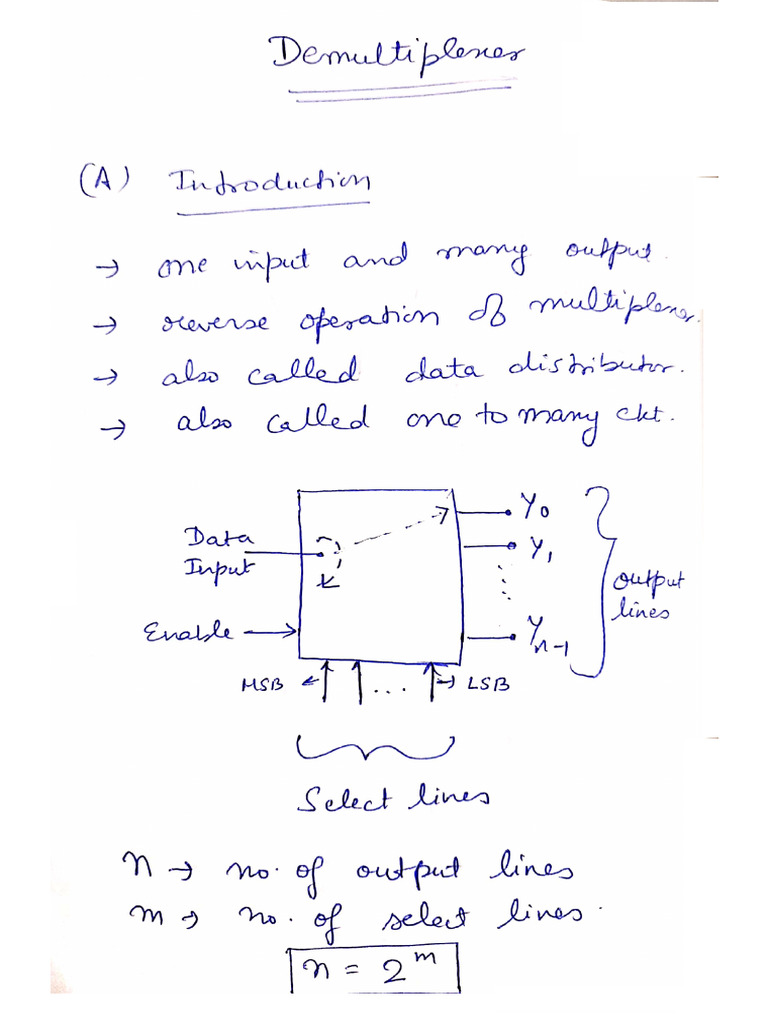 Demultiplexer
(A) Introduction
→ one input and many output.
→ reverse operation of multiplexer.
→ also called data distributor.
→ also called one to many ckt.
Data
Input
Enable
Y0
Y1
Yn-1
output
lines
MSB
...
LSB
Select lines
n → no. of output lines
m → no. of select lines.
n = 2^m